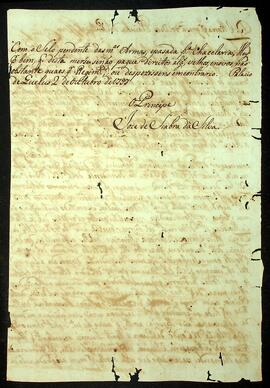 Com o Selo pendente das m.as Armas, e pasada p.la Chacelaria,
bem q desta merce não pague direitos alg.s velhos, e novos, não
obstante quaes q.r Regim.tos, ou despozissens em contrario. Palacio
de Queluz 2 de Outubro de 1797
O Principe
Joze de Siabra da Silva